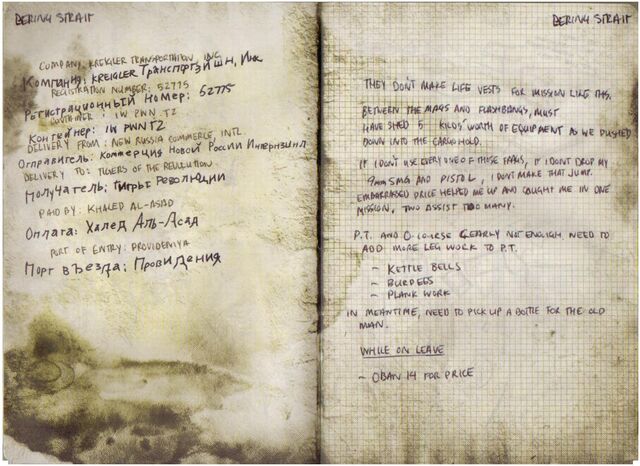 BERING STRAIT
COMPANY: KREIGLER TRANSPORTATION, INC.
Компания: KREIGLER Транспортэйшн, Инк
REGISTRATION NUMBER: 52775
Регистрационный Номер: 52775
CONTAINER: 1W PWN TZ
Контейнер: 1W PWNTZ
DELIVERY FROM: NEW RUSSIA COMMERCE, INTL
Отправитель: Коммерция Новой России
DELIVERY TO: TIGERS OF THE REVOLUTION
Получатель: Тигры Революции
PAID BY: KHALED AL-ASAD
Оплата: Халед Аль-Асад
PORT OF ENTRY: PROVIDENIYA
Порт въезда: Провидения
BERING STRAIT
THEY DON'T MAKE LIFE VESTS FOR MISSION LIKE THIS.
BETWEEN THE MAGS AND FLASHBANGS, MUST
HAVE SHED 5 KILOS' WORTH OF EQUIPMENT AS WE PUSHED
DOWN INTO THE CARGO HOLD.
IF I DON'T USE EVERY ONE OF THOSE FRAGS, IF I DON'T DROP MY
9mm SMG AND PISTOL, I DON'T MAKE THAT JUMP.
EMBARRASSED PRICE HELPED ME UP AND CAUGHT ME IN ONE
MISSION. TWO ASSIST TOO MANY.
P.T. AND O-COURSE CLEARLY NOT ENOUGH. NEED TO
ADD MORE LEG WORK TO P.T.
- KETTLE BELLS
- BURPEES
- PLANK WORK
IN MEANTIME, NEED TO PICK UP A BOTTLE FOR THE OLD
MAN.
WHILE ON LEAVE
- OBAN 14 FOR PRICE